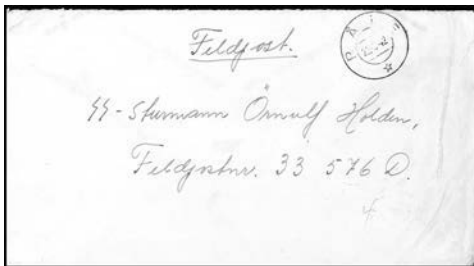 Feldpost.
SS-Sturmann Örnulf Holden,
Feldpostnr. 33 576 D.